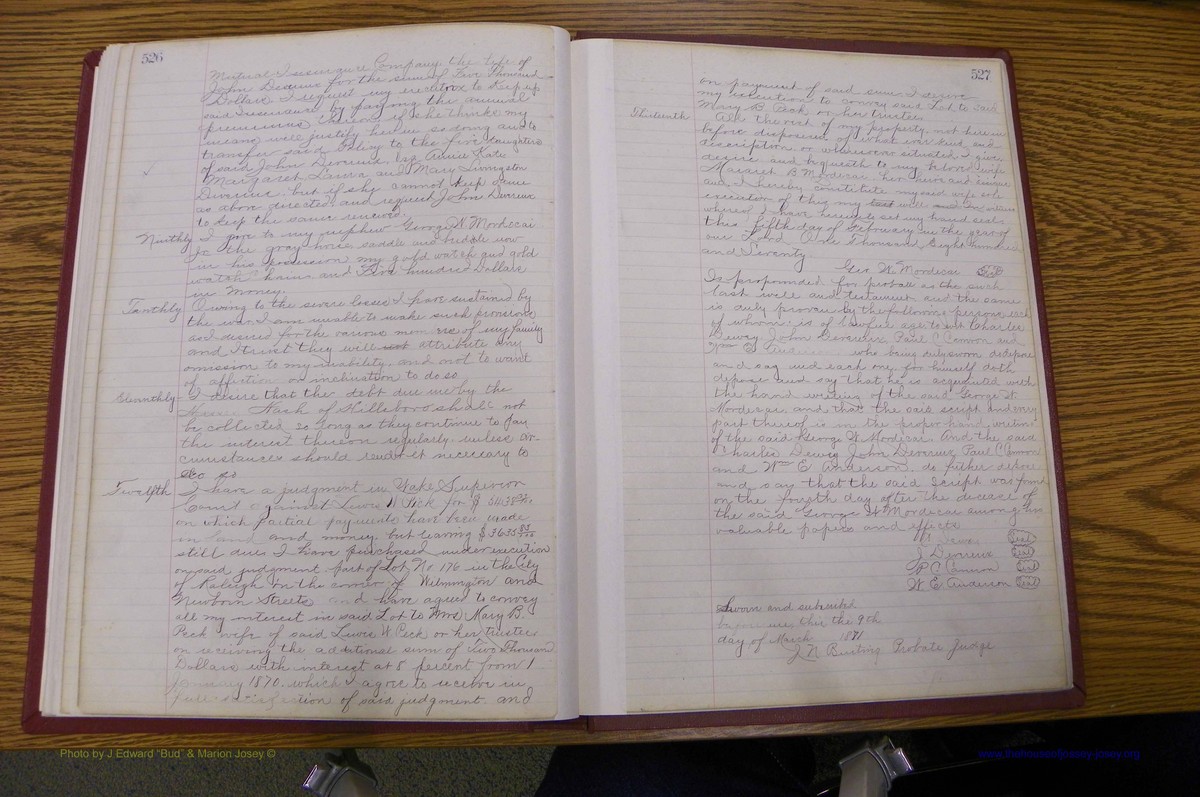 526
Mutual Insurance Company, the life of
John Devereux for the sum of Five Thousand
Dollars I request my executrix to Keep up
said Insurance by paying the annual
premiums thereon if she thinks my
means will justify her in so doing and to
transfer said Policy to the five daughters
of said John Devereux, viz Annie Kate
Margaret Laura and Mary Livingston
Devereux, but if she cannot Keep same
as above directed and request John Devereux
to Keep the same renewed.
Ninthly I give to my nephew George W Mordecai
Jr the gray horse saddle and bridle now
in his possession my gold watch and gold
watch chains and Five hundred Dollars
in Money.
Tenthly Owing to the severe losses I have sustained by
the war I am unable to make such provisions
as I desired for the various members of my family
and I trust they will not attribute any
omission to my inability and not to want
of affection or inclination to do so
Eleventhly I desire that the debt due me by the
Nash of Hillsboro shall not
be collected so long as they continue to pay
the interest thereon regularly unless cir
cumstances should render it necessary to
do so
Twelfth I have a judgment in Wake Superior
Court against Lewis W Peck for $
on which partial payments have been made
in Land and money but leaving $3635 83/100
still due, I have purchased under execution
on said judgment part of Lot No 176 in the City
of Raleigh on the corner of Wilmington and
Newborn Streets and have agreed to convey
all my interest in said Lot to Mrs Mary B.
Peck wife of said Lewis W. Peck or her trustee
on receiving the additional sum of Two Thousand
Dollars with interest at 8 percent from 1
January 1870. which I agree to receive in
full satisfaction of said judgment. and
527
on payment of said sum I desire
my executrix to convey said Lot to said
Mary B Peck or her trustee
Thirteenth All the rest of my property not herein
before disposed of what ever kind and
description or wheresoever situated I give
desire and bequeath to my beloved wife
Margaret B Mordecai her heirs and assigns
and I hereby constitute my said wife sole
executor of this my last will and In witness
whereof I have hereunto set my hand seal
this fifth day of February in the year of
our Lord One Thousand, Eight hundred
and Seventy
Geo W. Mordecai Seal
Is propounded for probate as the such
last will and testament and the same
is duly proven by the following persons, each
of whom is of lawful age to wit Charles
Dewey John Devereux, Paul C Cameron and
Wm E who being duly sworn depose
and say and each one for himself doth
depose and say that he is acquainted with
the hand writing of the said George W.
Mordecai, and that the said script and every
part thereof is in the proper hand writing
of the said George W Mordecai. And the said
Charles Dewey John Devereux Paul C Cameron
and Wm E Anderson. do further depose
and say that the said Script was found
on the fourth day after the decease of
the said George W Mordecai among his
valuable papers and effects
Dewey Seal
J Devereux Seal
P C Cameron Seal
W E Anderson Seal
Sworn and subscribed
before me, this the 9th
day of March 1871
J N Bunting Probate Judge
Photo by J Edward "Bud" & Marion Josey ©
www.thehouseofjossey-josey.org